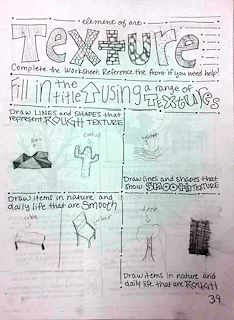 element of art
TexTure
Complete the worksheet. Reference the front if you need help!
Fill in the title ↑ using a range of TexTures
Draw LINES and SHAPES that represent ROUGH TEXTURE
cactus
water
Draw lines and shapes that show SMOOTH TEXTURE
Draw items in nature and daily life that are SMOOTH
chair
tree
Draw items in nature and daily life that are ROUGH
39